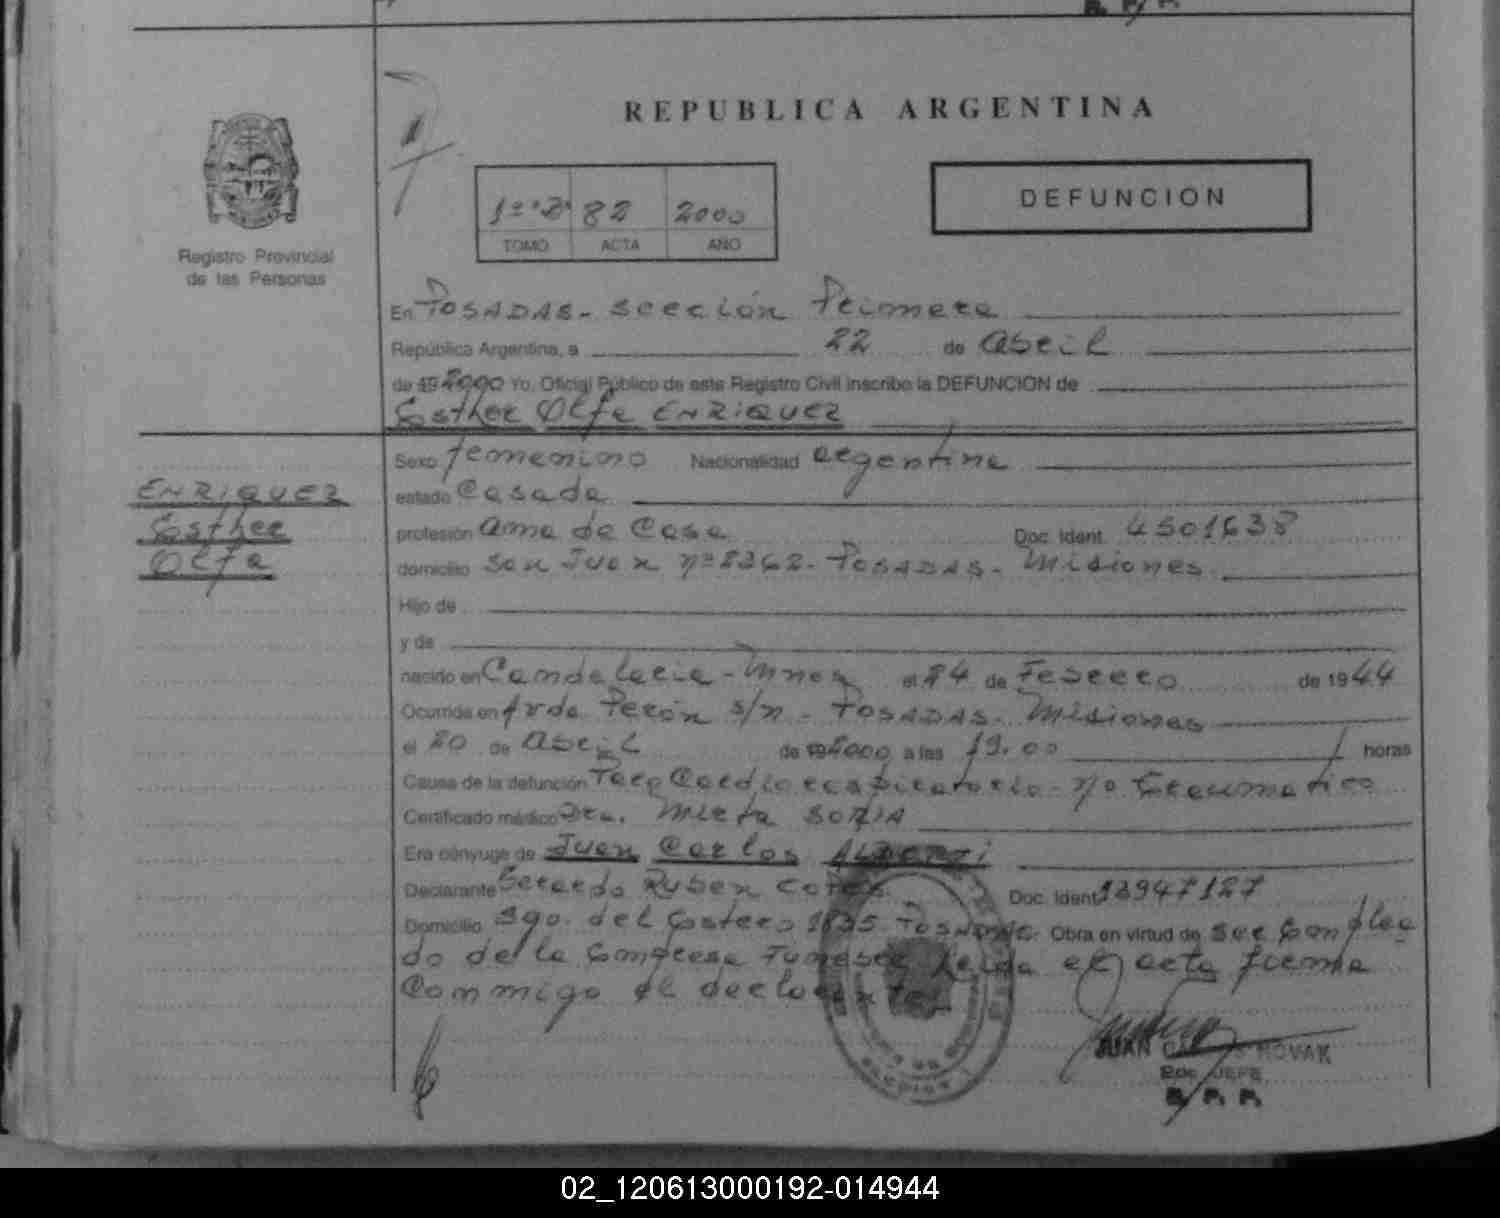 REPUBLICA ARGENTINA
DEFUNCION
82 2000
TOMO ACTA AÑO
Registro Provincial
de las Personas
En POSADAS - Sección Primera
República Argentina, a 22 de Abril
de 2000 Yo, Oficial Público de este Registro Civil inscribo la DEFUNCION de
Esther Olga ENRIQUEZ
ENRIQUEZ
Esther
Olga
Sexo femenino Nacionalidad argentina
estado Casada
profesión ama de casa Doc. Ident. 4501638
domicilio San Juan nº POSADAS - Misiones
Hijo de
y de
nacido en Candelaria - Mnes el de Febrero de 1944
Ocurrida en Avda Perón s/n - POSADAS - Misiones
el 20 de Abril de 2000 a las 19.00 horas
Causa de la defunción Paro Cardiorrespiratorio - no traumático
Certificado médico Dra. Mirta SORIA
Era cónyuge de Juan Carlos
Declarante Gerardo Ruben Doc. Ident. 13947127
Domicilio Sgo. del Estero POSADAS. Obra en virtud de ser emplea
do de la Empresa leída el acta firma
conmigo el declarante.
JUAN NOVAK
JEFE
R. P. P.
02_120613000192-014944